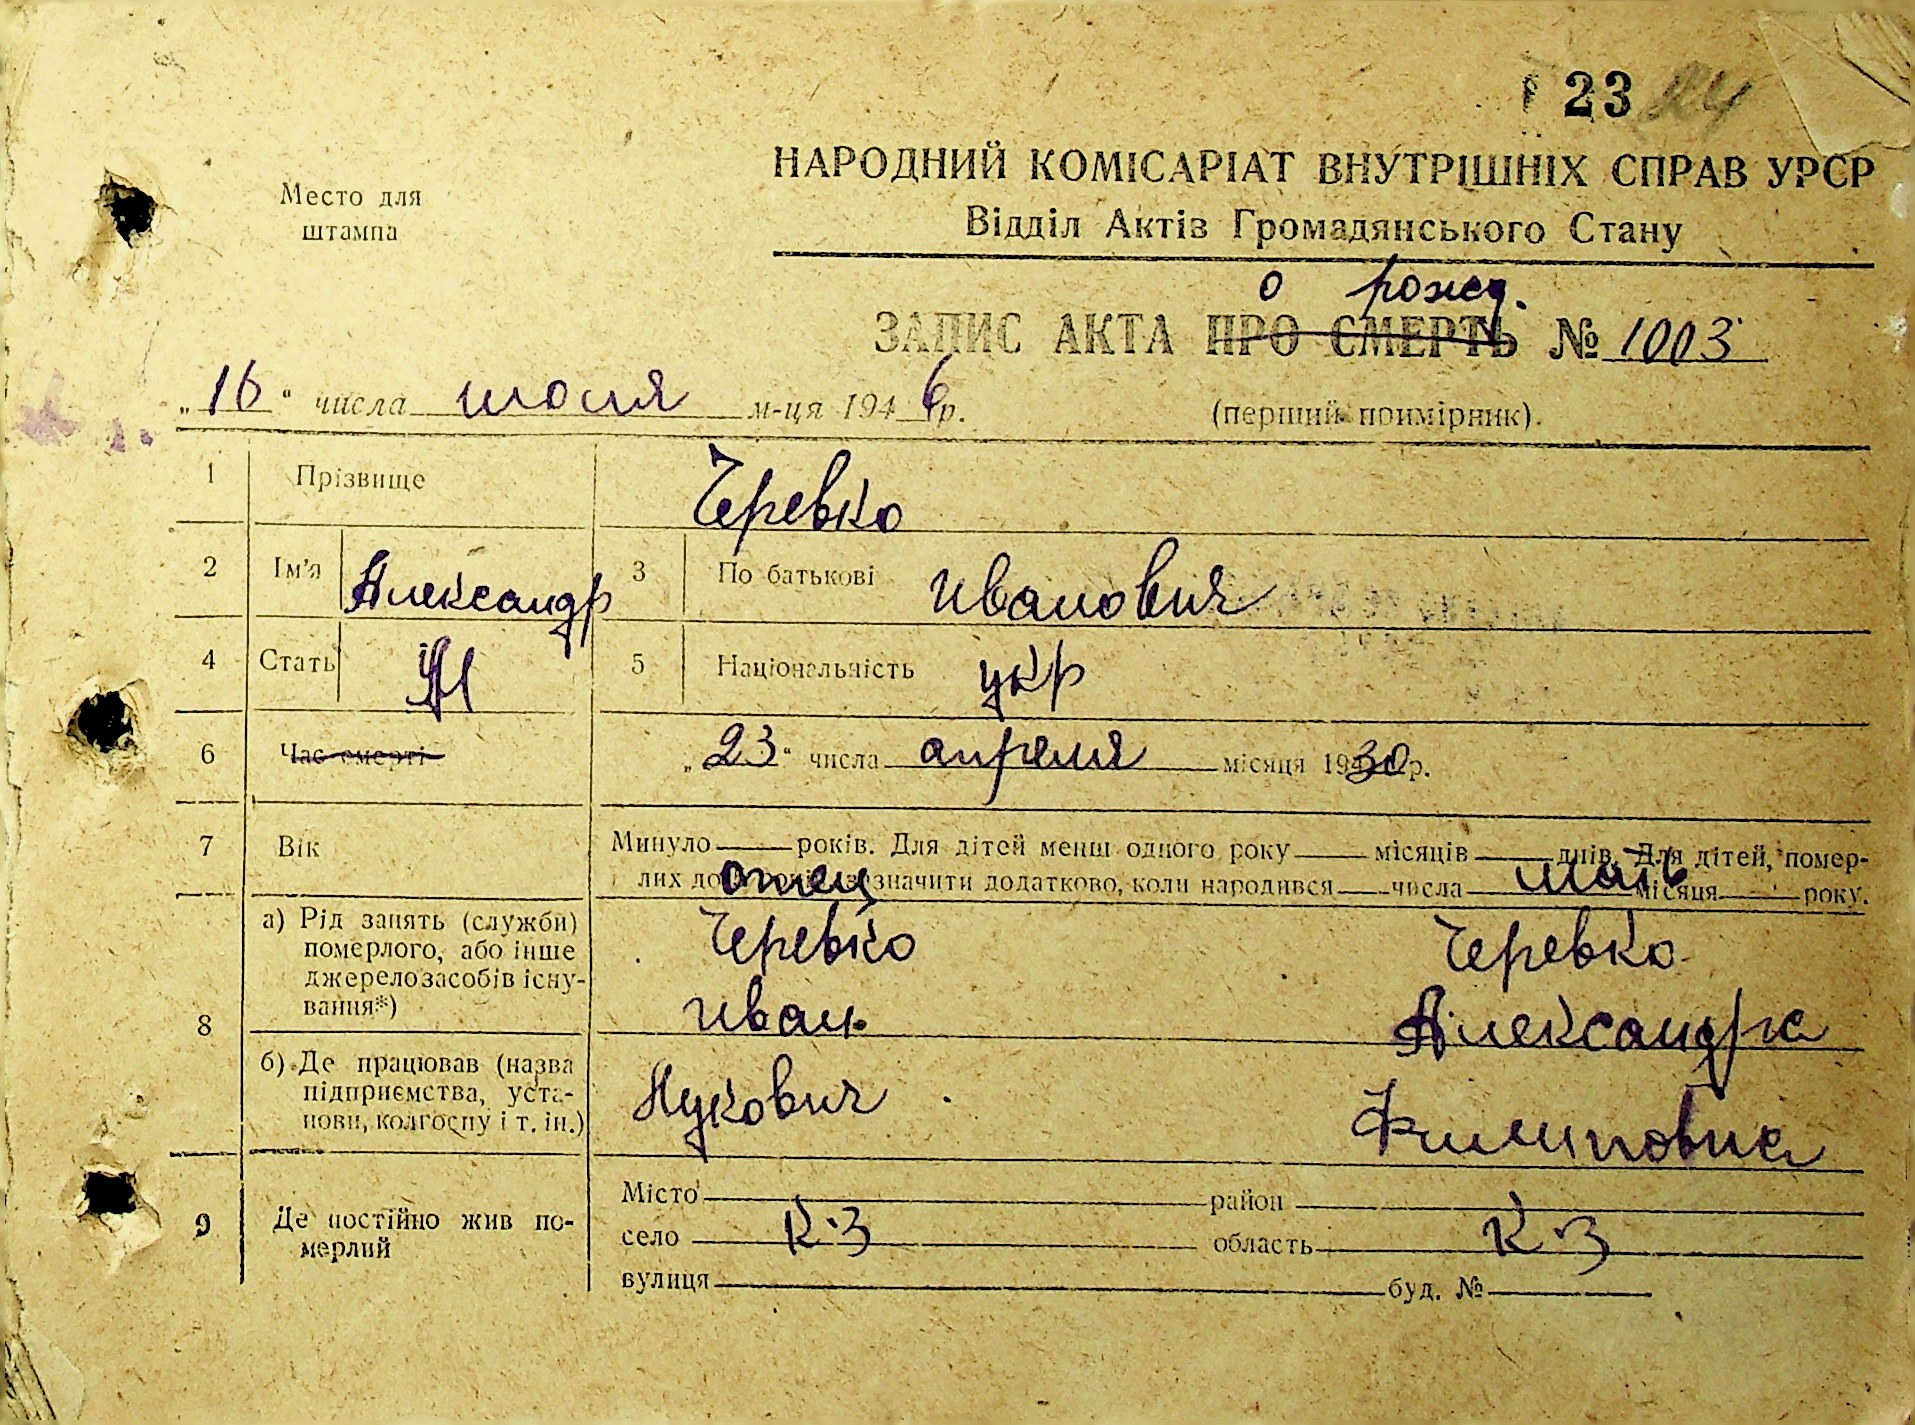 23 24
НАРОДНИЙ КОМІСАРІАТ ВНУТРІШНІХ СПРАВ УРСР
Место для
штампа
Відділ Актів Громадянського Стану
о рожд.
ЗАПИС АКТА ПРО СМЕРТЬ № 1003
„16“ числа июля м-ця 1946 р.
(перший примірник).
1 Прізвище Черевко
2 Ім'я Александр 3 По батькові Иванович
4 Стать М 5 Національність укр
6 Час смерті „23“ числа апреля місяця 1930 р.
7 Вік Минуло років. Для дітей менш одного року місяців днів. Для дітей, помер-
лих до зазначити додатково, коли народився числа місяця року.
отец мать
а) Рід занять (служби)
померлого, або інше
джерело засобів існу-
вання*)
Черевко Черевко
Иван Александра
8
б) Де працював (назва
підприємства, уста-
нови, колгоспу і т. ін.)
Лукович Филиповна
9 Де постійно жив по-
мерлий
Місто район
село К-З область К-З
вулиця буд. №